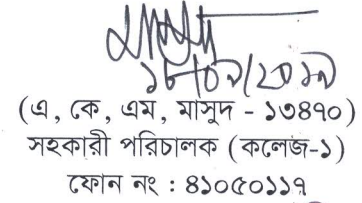 ১৮/০৯/২০১৭
(এ, কে, এম, মাসুদ - ১৩৪৭০)
সহকারী পরিচালক (কলেজ-১)
ফোন নং : ৪১০৫০১১৭